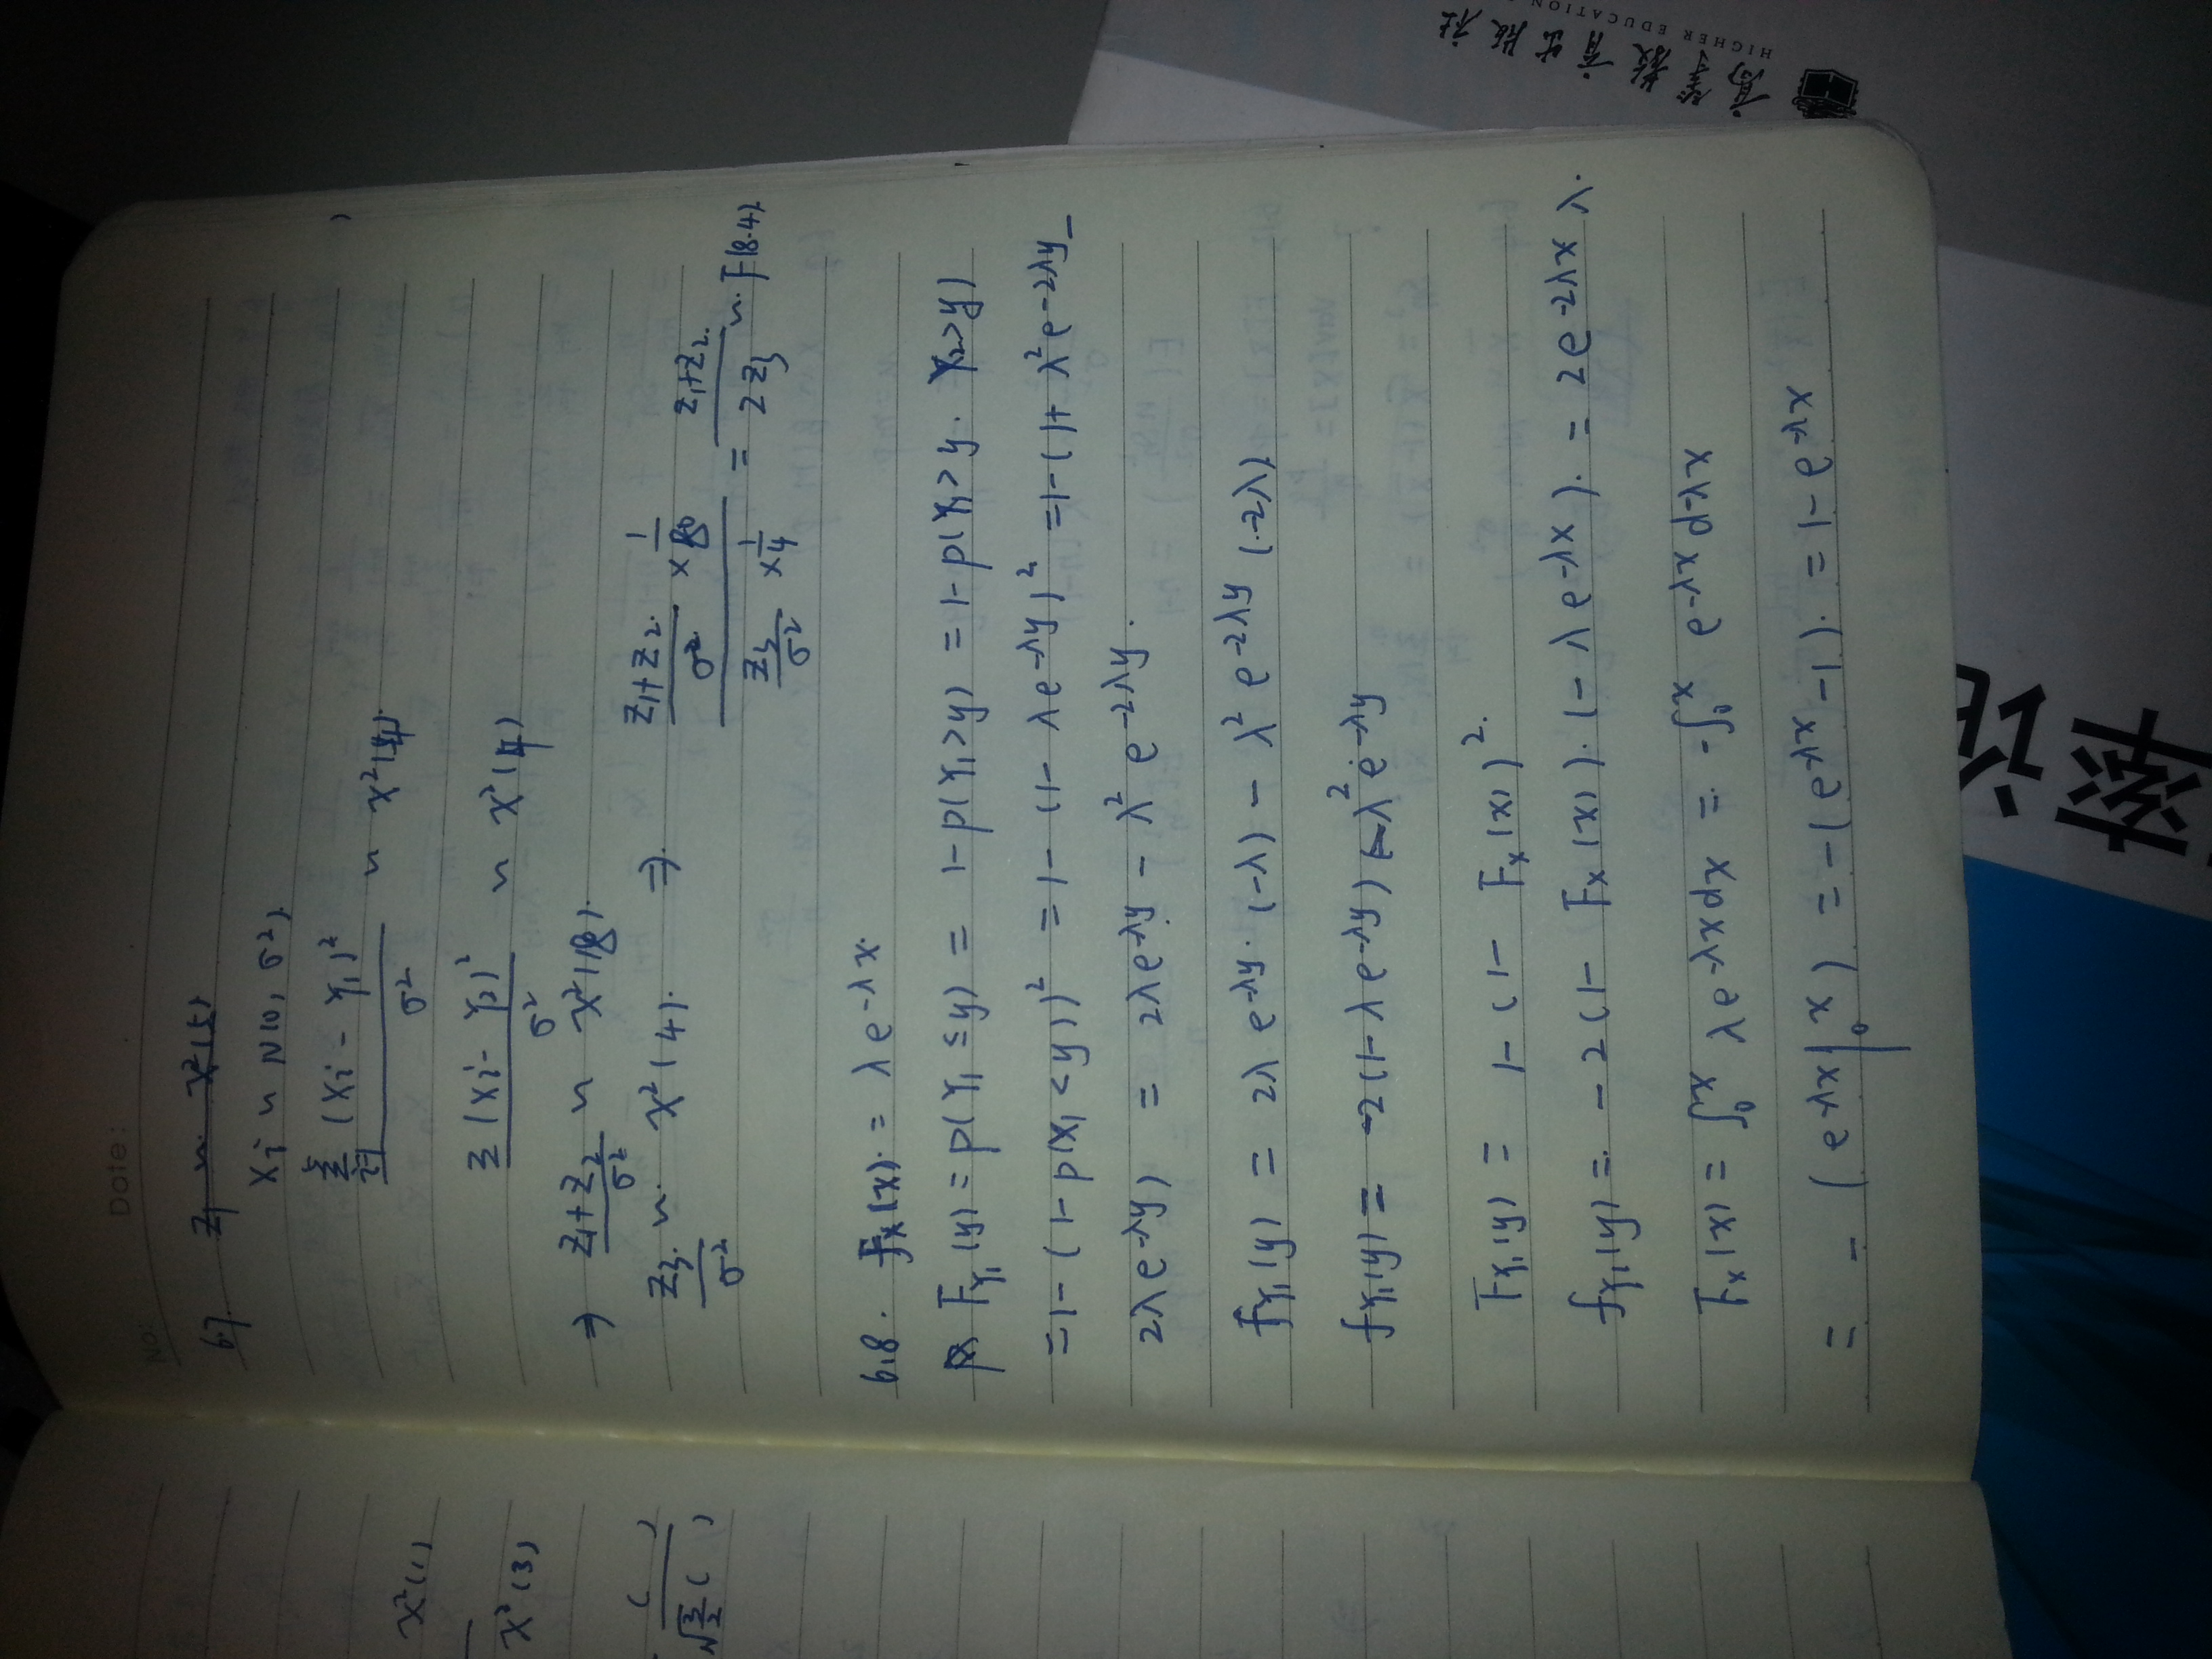 χ²(1)
χ²(3)
( )
√3/2 ( )
No:
Date:
6.7 Z₁ ~ χ²(5)
Xi ~ N(0, σ²).
Σ (Xi - Y₁)² / σ² ~ χ²(4).
Σ (Xi - Y₂)² / σ² ~ χ²(4)
⇒ (Z₁+Z₂)/σ² ~ χ²(8).
Z₃/σ² ~ χ²(4). ⇒ ((Z₁+Z₂)/σ² × 1/8) / (Z₃/σ² × 1/4) = (Z₁+Z₂)/(2Z₃) ~ F(8.4).
6.8. fx(x) = λe^(-λx)
F_Y₁(y) = p(Y₁ ≤ y) = 1-p(Y₁>y) = 1-p(X₁>y. X₂>y)
= 1-(1-p(X₁<y))² = 1-(1-λe^(-λy))² = 1-(1+λ²e^(-2λy) -
2λe^(-λy)) = 2λe^(-λy) - λ²e^(-2λy).
f_Y₁(y) = 2λe^(-λy)·(-λ) - λ²e^(-2λy)(-2λ)
f_Y₁(y) = -2(1-λe^(-λy)) -λ²e^(-λy)
F_Y₁(y) = 1-(1-Fx(x))².
f_Y₁(y) = -2(1-Fx(x)).(-λe^(-λx)). = 2e^(-2λx) λ.
Fx(x) = ∫₀ˣ λe^(-λx)dx = -∫₀ˣ e^(-λx) d-λx
= -(e^(-λx)|₀ˣ) = -(e^(-λx) -1). = 1-e^(-λx)
高等教育出版社
HIGHER EDUCATION
率论